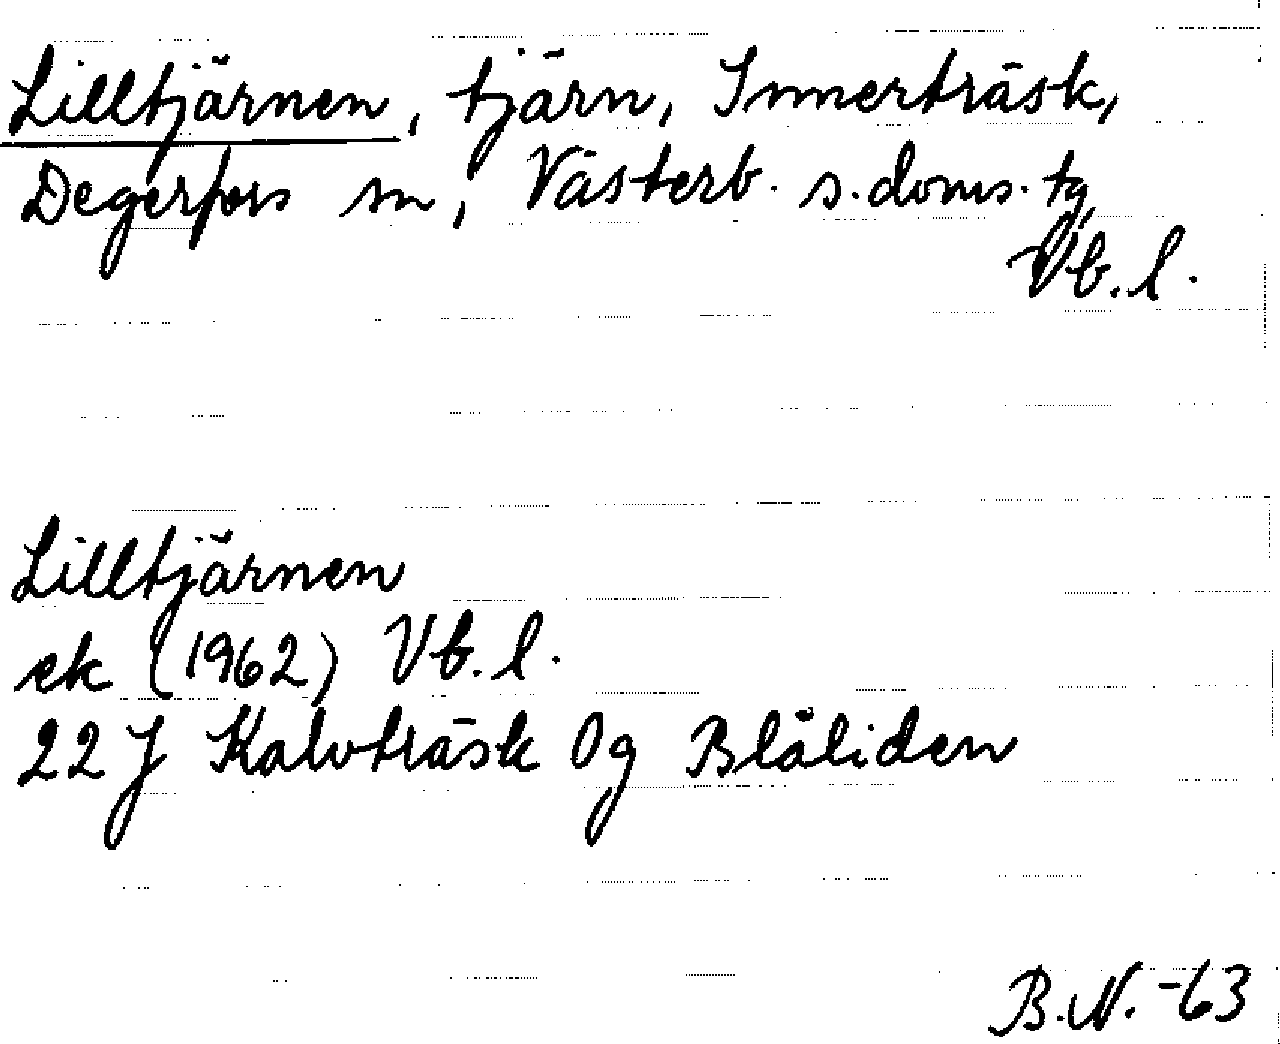 Lilltjärnen, tjärn, Innerträsk,
Degerfors sn, Västerb. s. doms. tg
Vb. l.
Lilltjärnen
ek (1962) Vb. l.
22 J Kalvträsk 0g Blåliden
B.N. -63